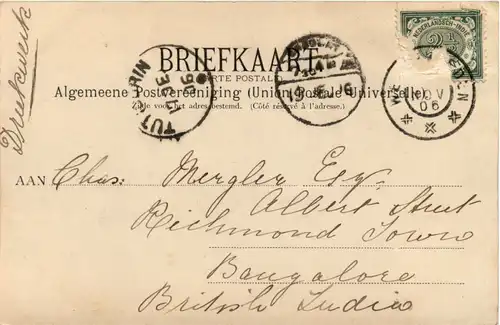 Drukwerk
NEDERLANDSCH-INDIË
2½
BRIEFKAART
CARTE POSTALE
Algemeene Postvereeniging (Union Postale Universelle).
Zijde voor het adres bestemd. (Côté réservé à l'adresse.)
TUTICORIN
DE
06
NOV
06
AAN Chas: Mergler Esq.
Albert Street
Richmond Town
Bangalore
British India